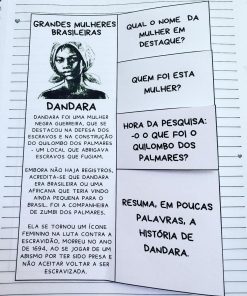 GRANDES MULHERES
BRASILEIRAS
DANDARA
DANDARA FOI UMA MULHER
NEGRA GUERREIRA, QUE SE
DESTACOU NA DEFESA DOS
ESCRAVOS E NA CONSTRUÇÃO
DO QUILOMBO DOS PALMARES
- UM LOCAL QUE ABRIGAVA
ESCRAVOS QUE FUGIAM.
EMBORA NÃO HAJA REGISTROS,
ACREDITA-SE QUE DANDARA
ERA BRASILEIRA OU UMA
AFRICANA QUE TERIA VINDO
AINDA PEQUENA PARA O
BRASIL. FOI A COMPANHEIRA
DE ZUMBI DOS PALMARES.
ELA SE TORNOU UM ÍCONE
FEMININO NA LUTA CONTRA A
ESCRAVIDÃO, MORREU NO ANO
DE 1694, AO SE JOGAR DE UM
ABISMO POR TER SIDO PRESA E
NÃO ACEITAR VOLTAR A SER
ESCRAVIZADA.
QUAL O NOME DA
MULHER EM
DESTAQUE?
QUEM FOI ESTA
MULHER?
HORA DA PESQUISA:
-O O QUE FOI O
QUILOMBO DOS
PALMARES?
RESUMA, EM POUCAS
PALAVRAS, A
HISTÓRIA DE
DANDARA.